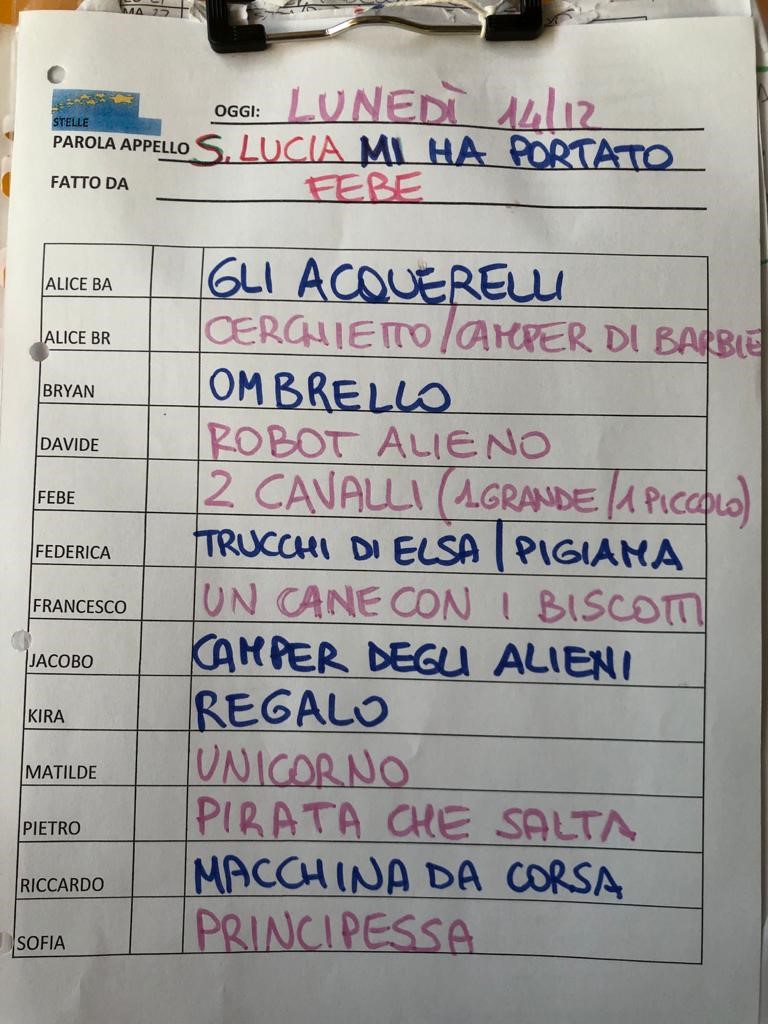 MA 22
STELLE
OGGI: LUNEDÌ 14/12
PAROLA APPELLO S. LUCIA MI HA PORTATO
FATTO DA FEBE
ALICE BA GLI ACQUERELLI
ALICE BR CERCHIETTO/CAMPER DI BARBIE
BRYAN OMBRELLO
DAVIDE ROBOT ALIENO
FEBE 2 CAVALLI (1 GRANDE/1 PICCOLO)
FEDERICA TRUCCHI DI ELSA/PIGIAMA
FRANCESCO UN CANE CON I BISCOTTI
JACOBO CAMPER DEGLI ALIENI
KIRA REGALO
MATILDE UNICORNO
PIETRO PIRATA CHE SALTA
RICCARDO MACCHINA DA CORSA
SOFIA PRINCIPESSA